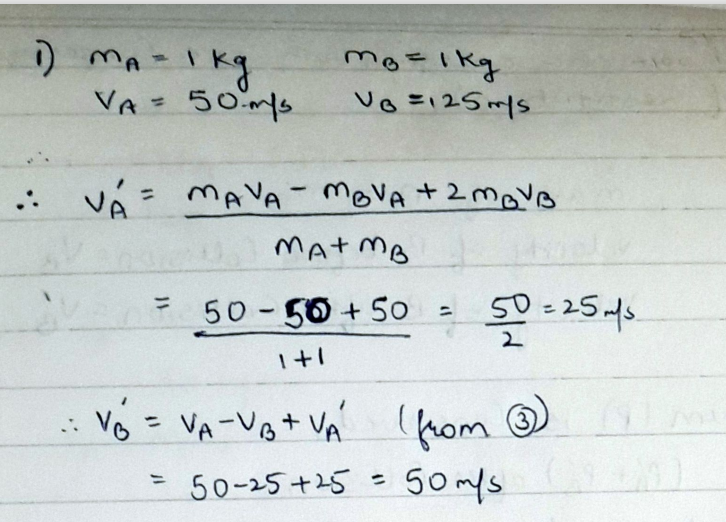 1) mA = 1 kg mB = 1 kg
VA = 50 m/s VB = 25 m/s
∴ VA' = mAVA - mBVA + 2mBVB / mA + mB
= 50 - 50 + 50 / 1+1 = 50/2 = 25 m/s
∴ VB' = VA - VB + VA' (from ③)
= 50 - 25 + 25 = 50 m/s